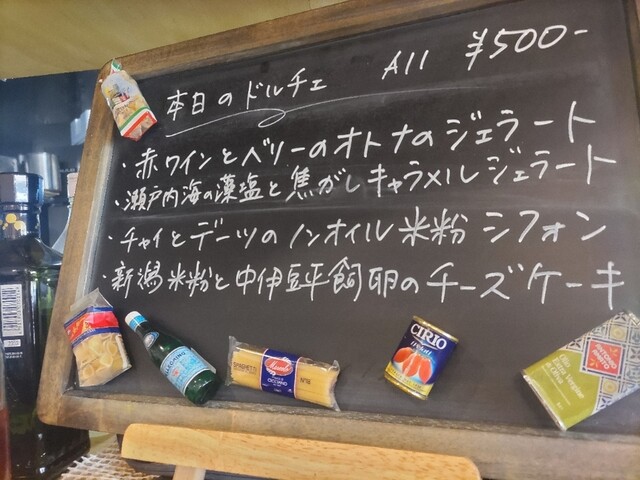 本日のドルチェ All ¥500-
・赤ワインとベリーのオトナのジェラート
・瀬戸内海の藻塩と焦がしキャラメルジェラート
・チャイとデーツのノンオイル米粉シフォン
・新潟米粉と中伊豆平飼卵のチーズケーキ
CIRIO